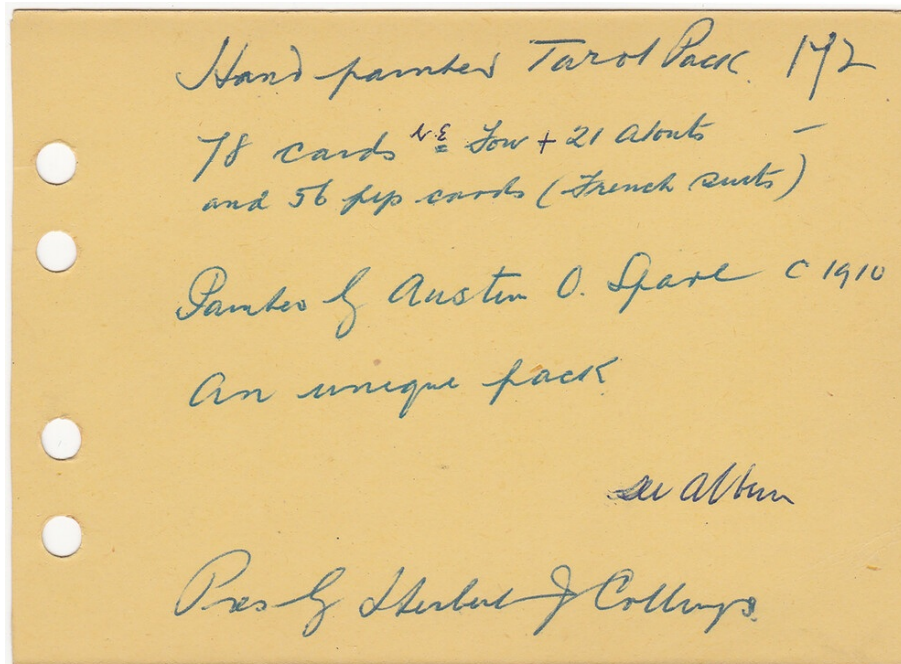 Hand painted Tarot Pack. 172
78 cards N.E = Fow + 21 Atouts –
and 56 pip cards (French suits)
Painted by Austin O. Spare c 1910
An unique pack
see Album
Pres by Herbert J Collings.